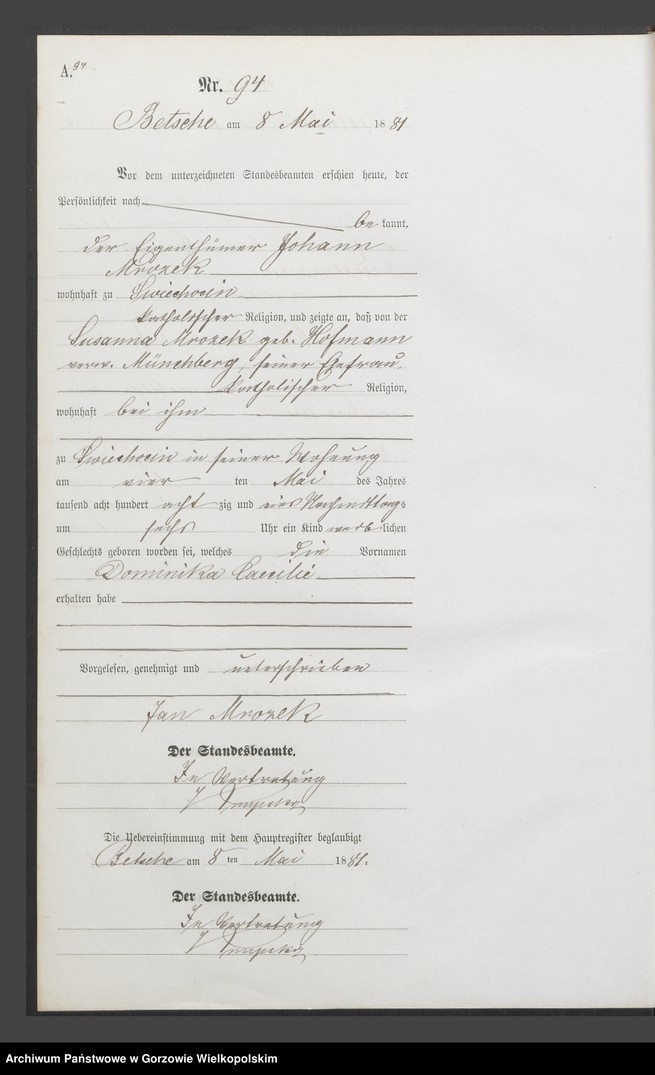 A. 94
Nr. 94
Betsche am 8 Mai 1881
Vor dem unterzeichneten Standesbeamten erschien heute, der
Persönlichkeit nach
bekannt,
der Eigenthümer Johann
Mrozek
wohnhaft zu Swiechocin
katholischer Religion, und zeigte an, daß von der
Susanna Mrozek geb. Hofmann
verw. Münchberg, seiner Ehefrau,
katholischer Religion,
wohnhaft bei ihm
zu Swiechocin in seiner Wohnung
am vier ten Mai des Jahres
tausend acht hundert acht zig und eins Nachmittags
um sechs Uhr ein Kind weiblichen
Geschlechts geboren worden sei, welches die Vornamen
Dominika Caecilie
erhalten habe
Vorgelesen, genehmigt und unterschrieben
Jan Mrozek
Der Standesbeamte.
In Vertretung
Die Uebereinstimmung mit dem Hauptregister beglaubigt
Betsche am 8 ten Mai 1881.
Der Standesbeamte.
In Vertretung
Archiwum Państwowe w Gorzowie Wielkopolskim